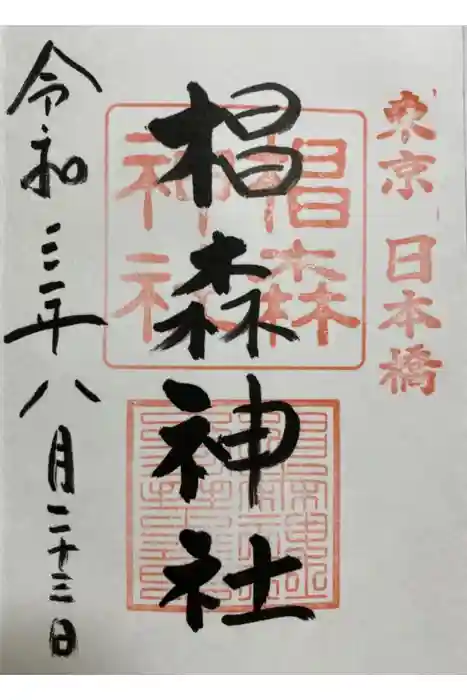 東京 日本橋
椙森
神社
椙森神社
令和三年八月二十三日